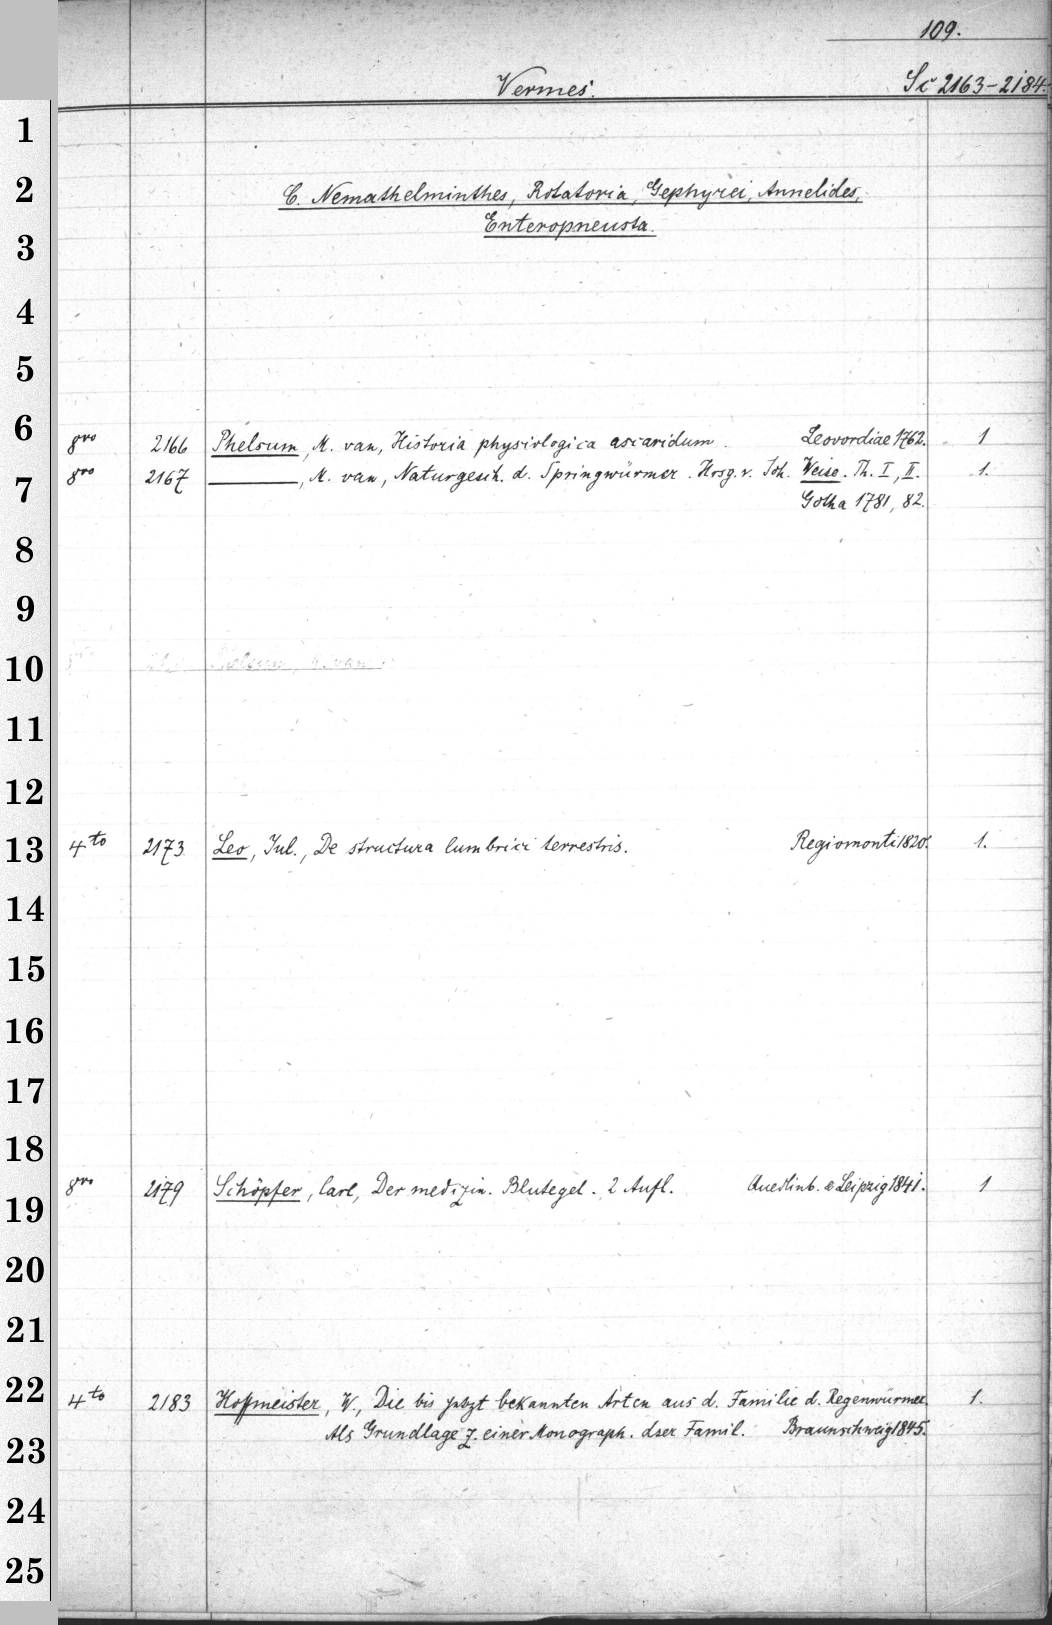 109.
Vermes. Sc 2163-2184.
1
2
C. Nemathelminthes, Rotatoria, Gephyrei, Annelides,
Enteropneusta.
3
4
5
6
8vo 2166 Phelsum, M. van, Historia physiologica ascaridum. Leovordiae 1762. 1
8vo 2167 ———, M. van, Naturgesch. d. Springwürmer. Hrsg. v. Joh. Weise. Th. I, II. 1.
7
Gotha 1781, 82.
8
9
10
Phelsum, M. van
11
12
13
4to 2173 Leo, Jul., De structura lumbrici terrestris. Regiomonti 1820. 1.
14
15
16
17
18
8vo 2179 Schöpfer, Carl, Der medizin. Blutegel. 2 Aufl. Quedlinb. & Leipzig 1841. 1
19
20
21
22
4to 2183 Hoffmeister, W., Die bis jetzt bekannten Arten aus d. Familie d. Regenwürmer. 1.
Als Grundlage z. einer Monograph. dser Famil. Braunschweig 1845.
23
24
25